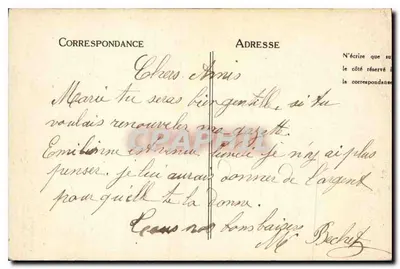 CORRESPONDANCE
ADRESSE
N'écrire que su
le côté réservé à
la correspondance
Chers Amis
Marie tu seras bien gentille, si tu
voulais renouveler ma gazette
Emilienne est venue lundi je n'y ai plus
penser. je lui aurais donner de l'argent
pour qu'elle te la donne.
nos bons baisers
Me Bechet